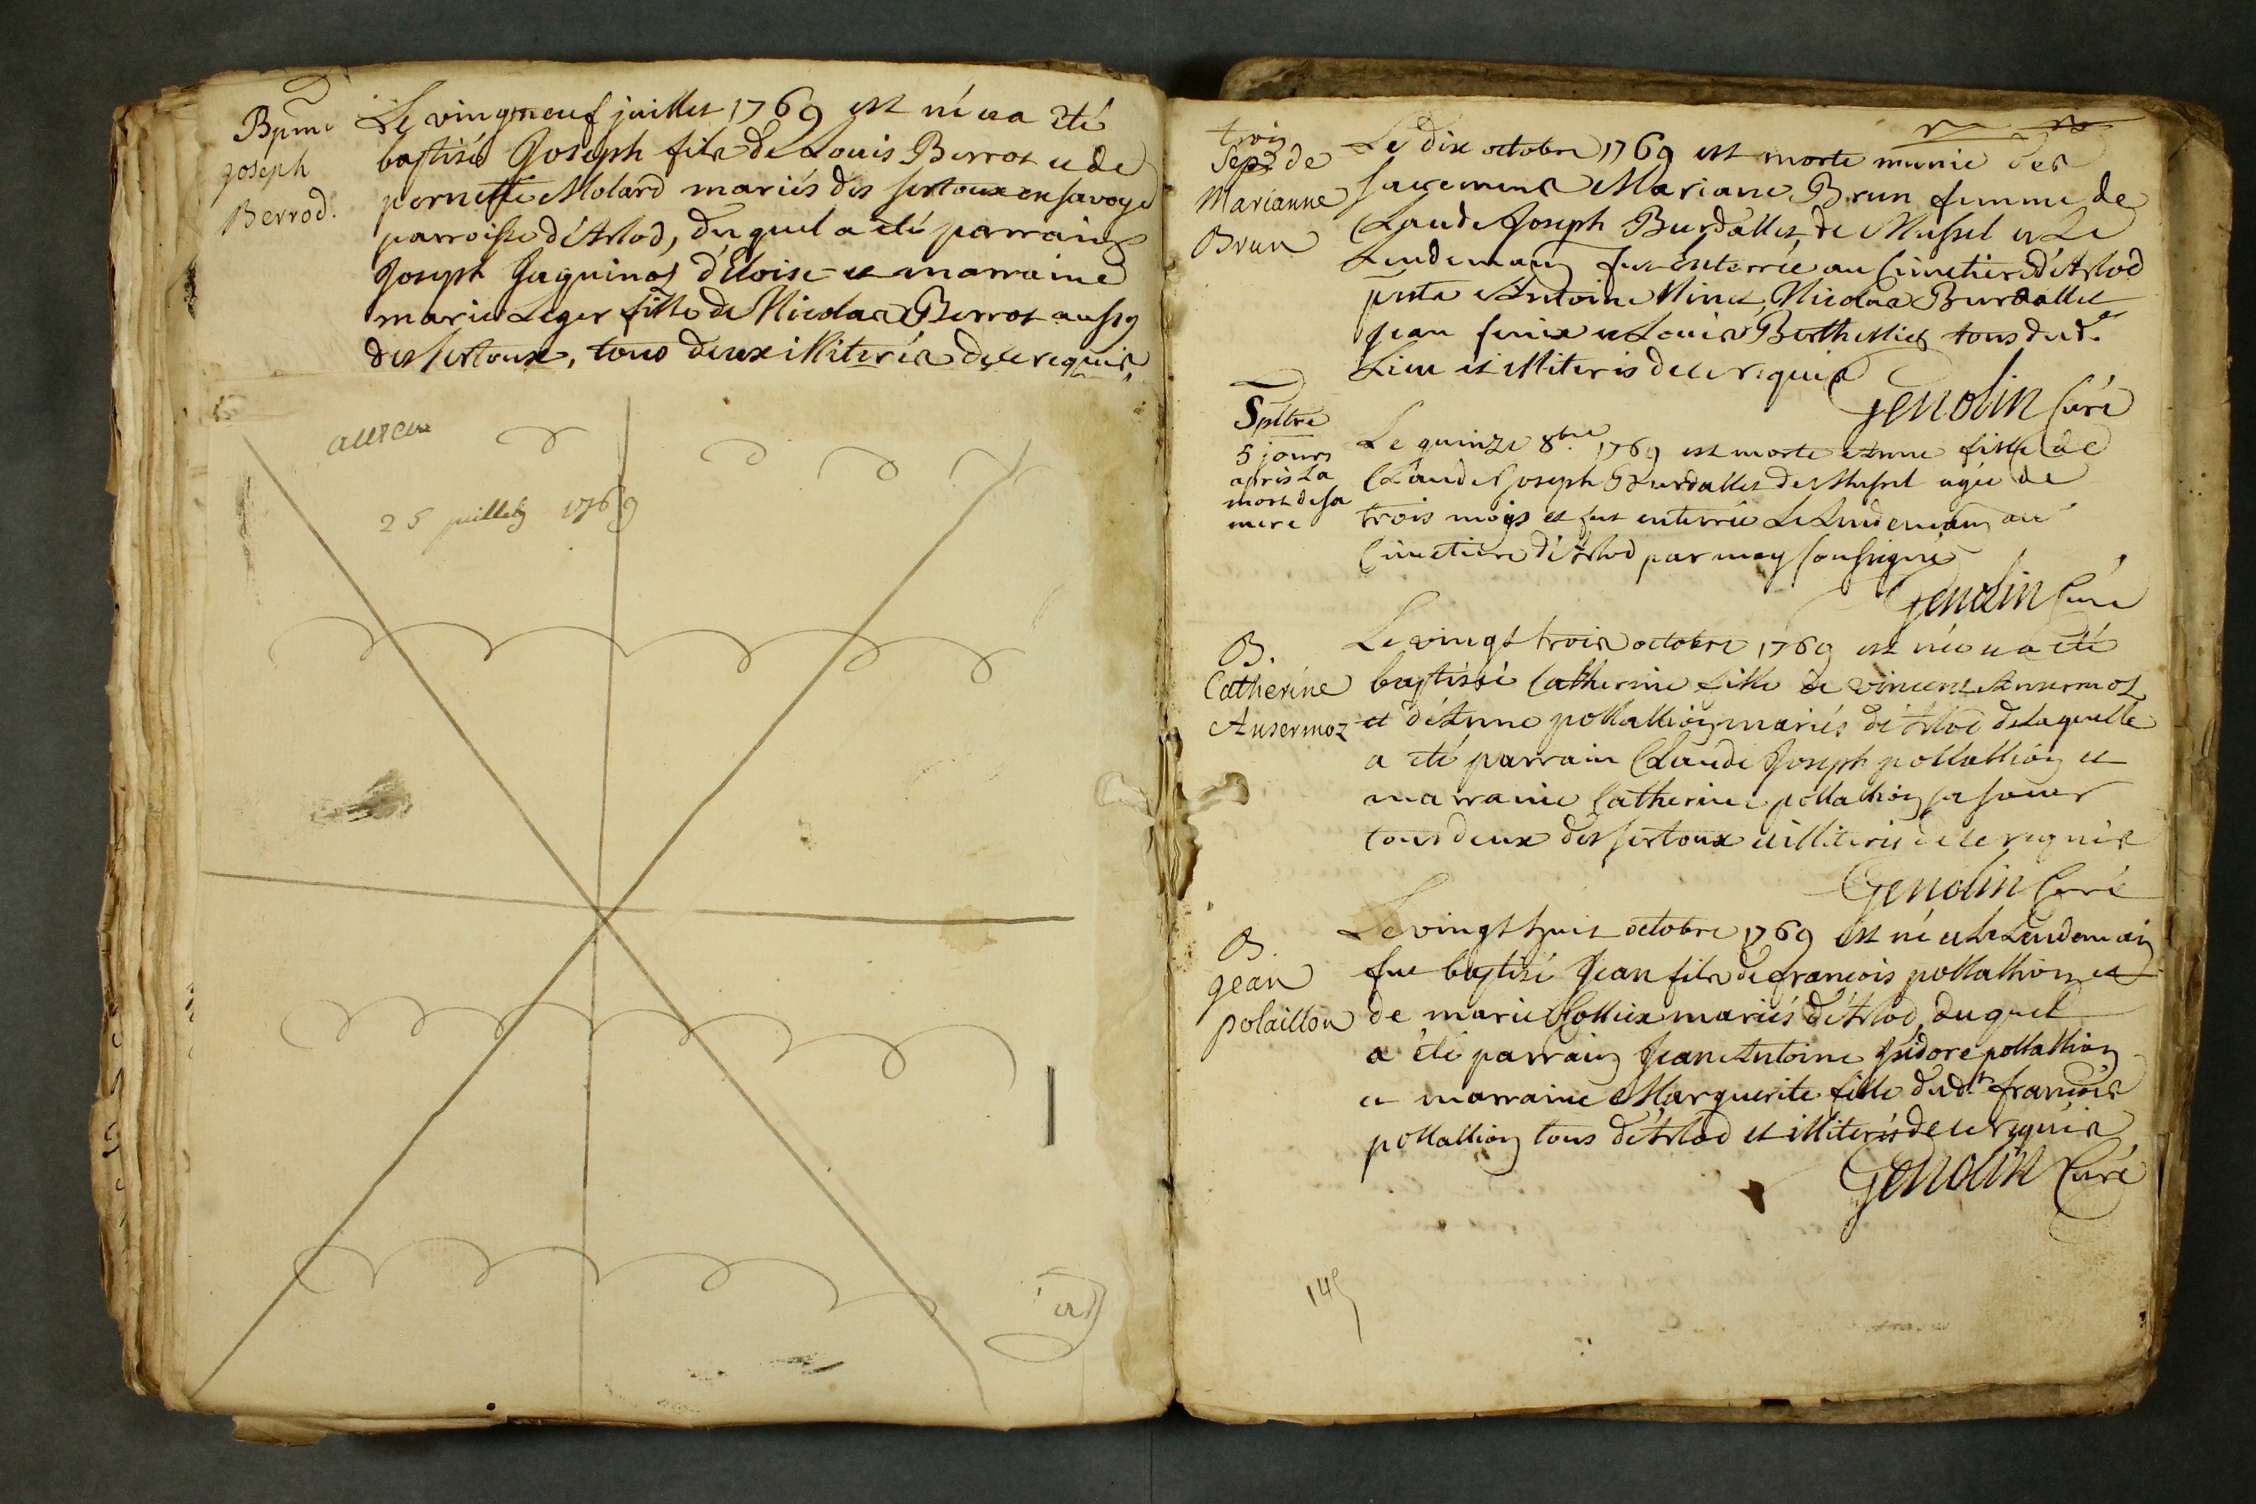 Bpme
joseph
Berrod.
Le vingtneuf juillet 1769 est né et a été
baptisé Joseph fils de Louis Berrot et de
pernette Molard mariés des sertoux en savoye
parroisse d'Arlod, duquel a été parrain
Joseph Jaquinot d'Eloise et marraine
marie Leger fille de Nicolas Berrot aussy
des sertoux, tous deux illiterés de ce requis,
25 juillet 1769
trois
Sep de
Marianne
Brun
Le dix octobre 1769 est morte munie des
sacremens Mariane Brun femme de
Claude Joseph Burdallet de Mussel et Le
Lendemain fut enterrée au Cimetiere d'Arlod
pnts Antoine Ninet, Nicolas Burdallet
Jean fenix et Louis Berthellier tous dud.
Lieu et illiteris de ce requis
Genolin Curé
Spltre
5 jours
après La
mort de sa
mere
Le quinze 8bre 1769 est morte Anne fille de
Claude Joseph Burdallet de Mussel agée de
trois mois et fut enterrée Le Lendemain au
Cimetiere d'Arlod par moy soussigné
Genolin Curé
B.
Catherine
Ansermoz
Le vingt trois octobre 1769 est née et a été
baptisée Catherine fille de vincent Ansermoz
et d'Anne pollallion mariés d'Arlod de Laquelle
a été parrain Claude Joseph pollallion et
marraine Catherine pollallion sa soeur
tous deux des sertoux et illiteris de ce requis
Genolin Curé
B.
jean
polaillon
Le vingt huit octobre 1769 est né et Le Lendemain
fut baptisé Jean fils de françois pollallion et
de marie Colliex mariés d'Arlod, duquel
a été parrain Jean Antoine Isidore pollallion
et marraine Marguerite fille dud. françois
pollallion tous d'Arlod et illiterés de ce requis
Genolin Curé
145